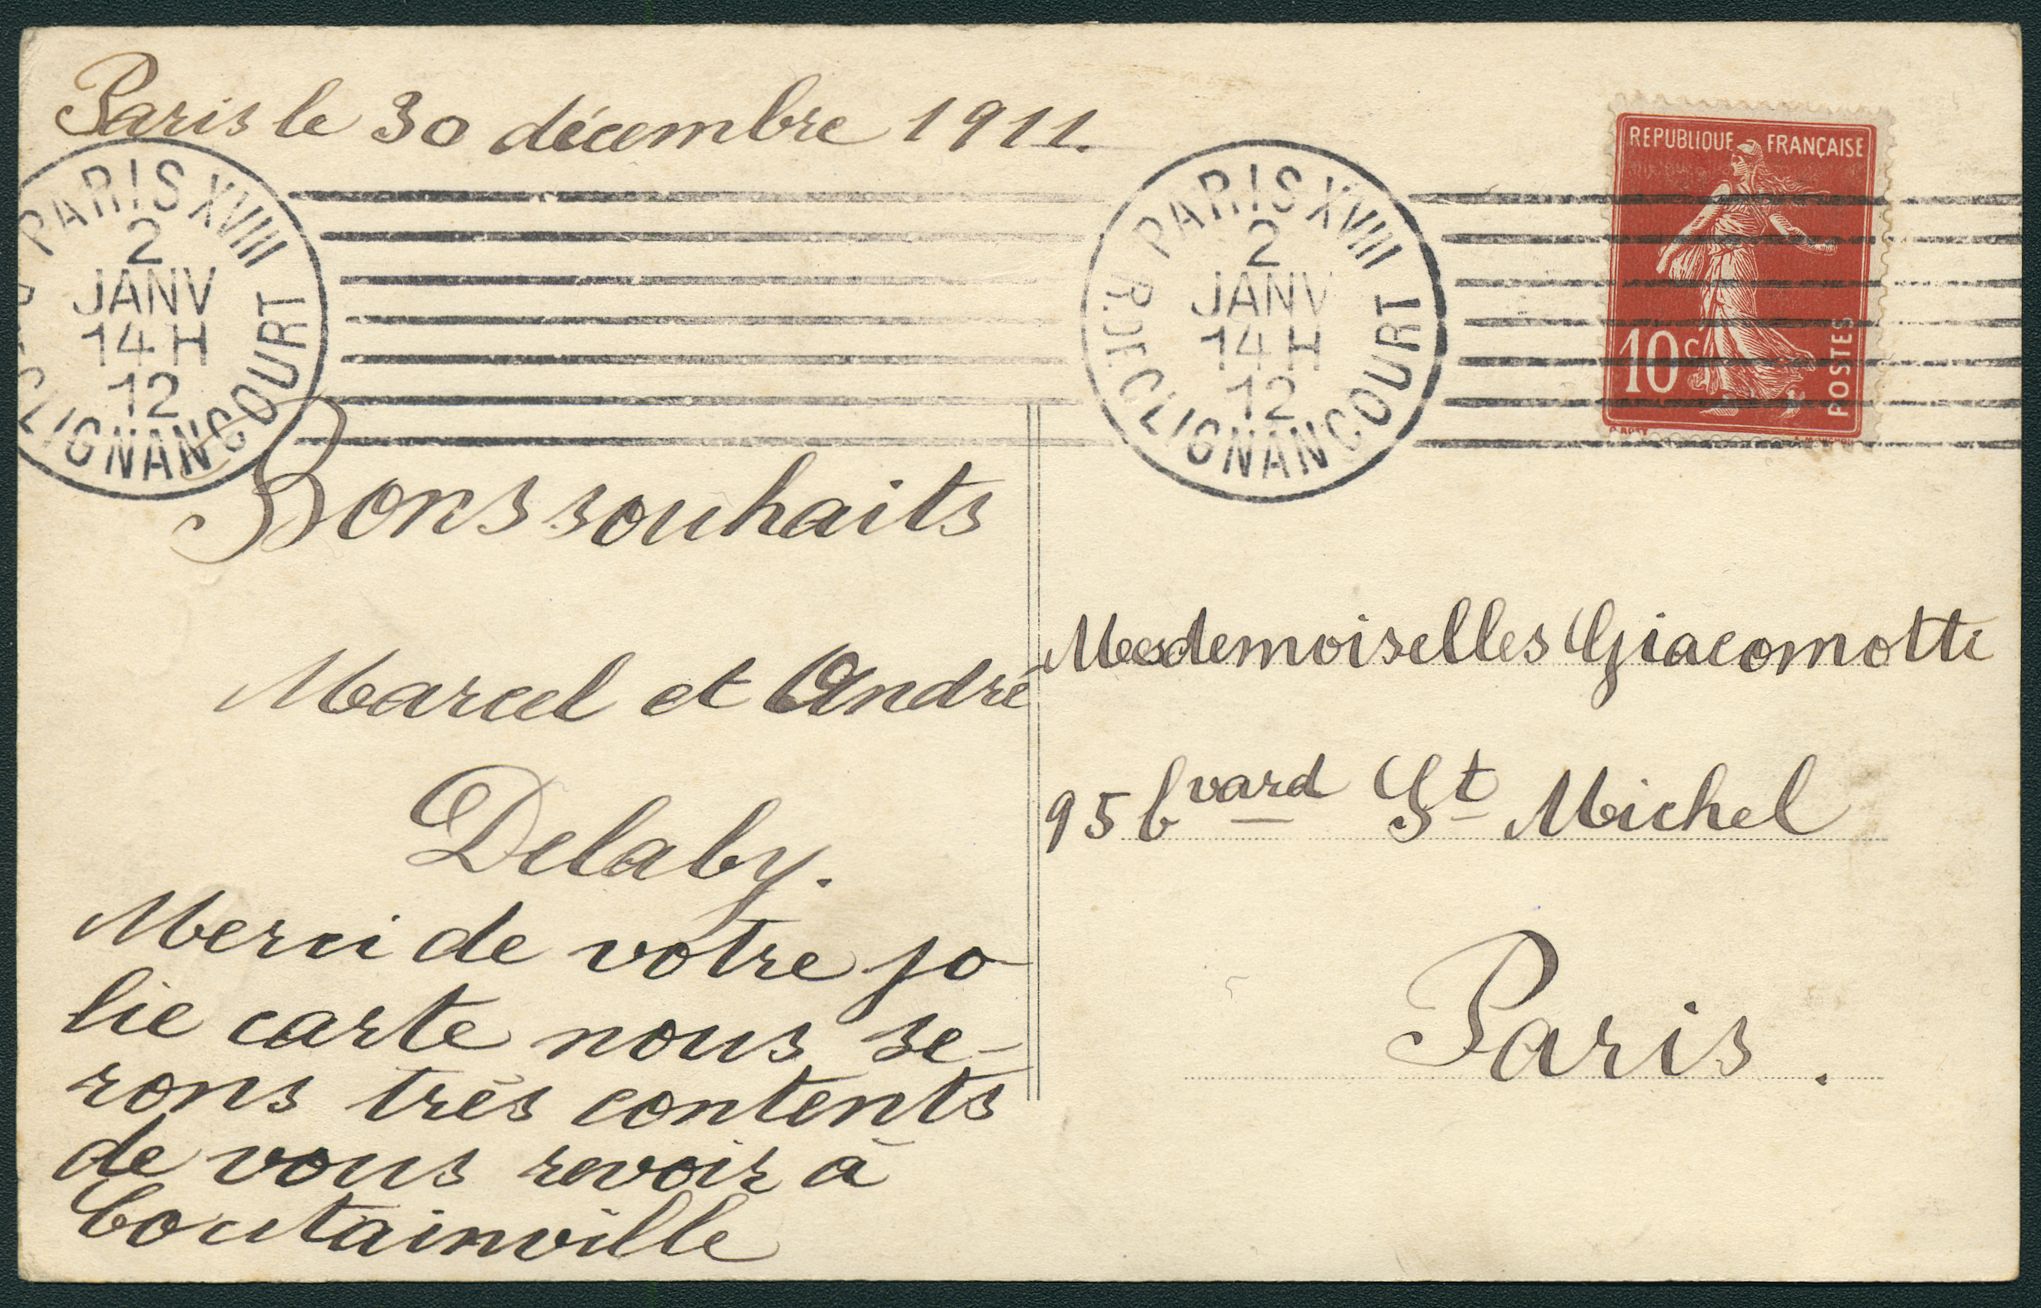 Paris le 30 décembre 1911.
PARIS XVIII
2
JANV
14 H
12
CLIGNANCOURT
PARIS XVIII
2
JANV
14 H
12
R. DE CLIGNANCOURT
REPUBLIQUE FRANÇAISE
10c
POSTES
Bons souhaits
Marcel et André
Delaby.
Merci de votre jo
lie carte nous se-
rons très contents
de vous revoir à
Coutainville
Mesdemoiselles Giacomotti
95 bvard St Michel
Paris.